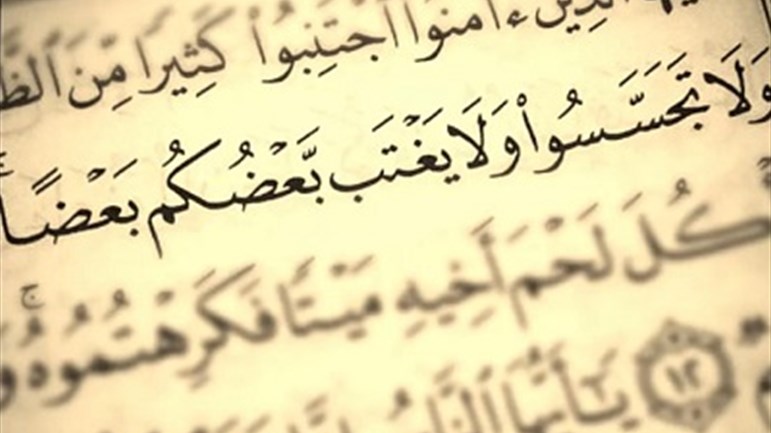 ءَامَنُوا۟ ٱجْتَنِبُوا۟ كَثِيرًا مِّنَ ٱلظَّ
وَلَا تَجَسَّسُوا۟ وَلَا يَغْتَب بَّعْضُكُم بَعْضًا
كُلَ لَحْمَ أَخِيهِ مَيْتًا فَكَرِهْتُمُوهُ ۚ
١٢ يَٰٓأَيُّهَا ٱلنَّاسُ